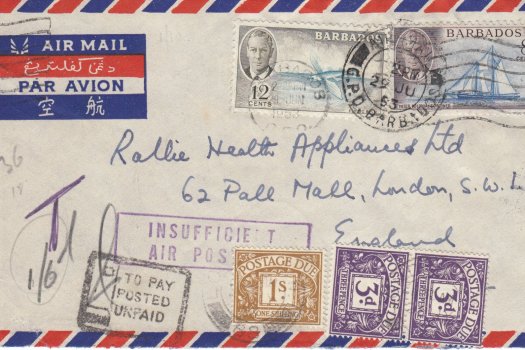 AIR MAIL
PAR AVION
空 航
BARBADOS
12
CENTS
BARBADOS
29 JU
53
G.P.O. BARBADOS
1953
36
18
Rallie Health Appliances Ltd
62 Pall Mall, London, S.W.1
England
T
1/6
INSUFFICIENT
AIR POS
TO PAY
POSTED
UNPAID
POSTAGE DUE
1s
ONE SHILLING
POSTAGE DUE
3d
THREE PENCE
POSTAGE DUE
3d
THREE PENCE